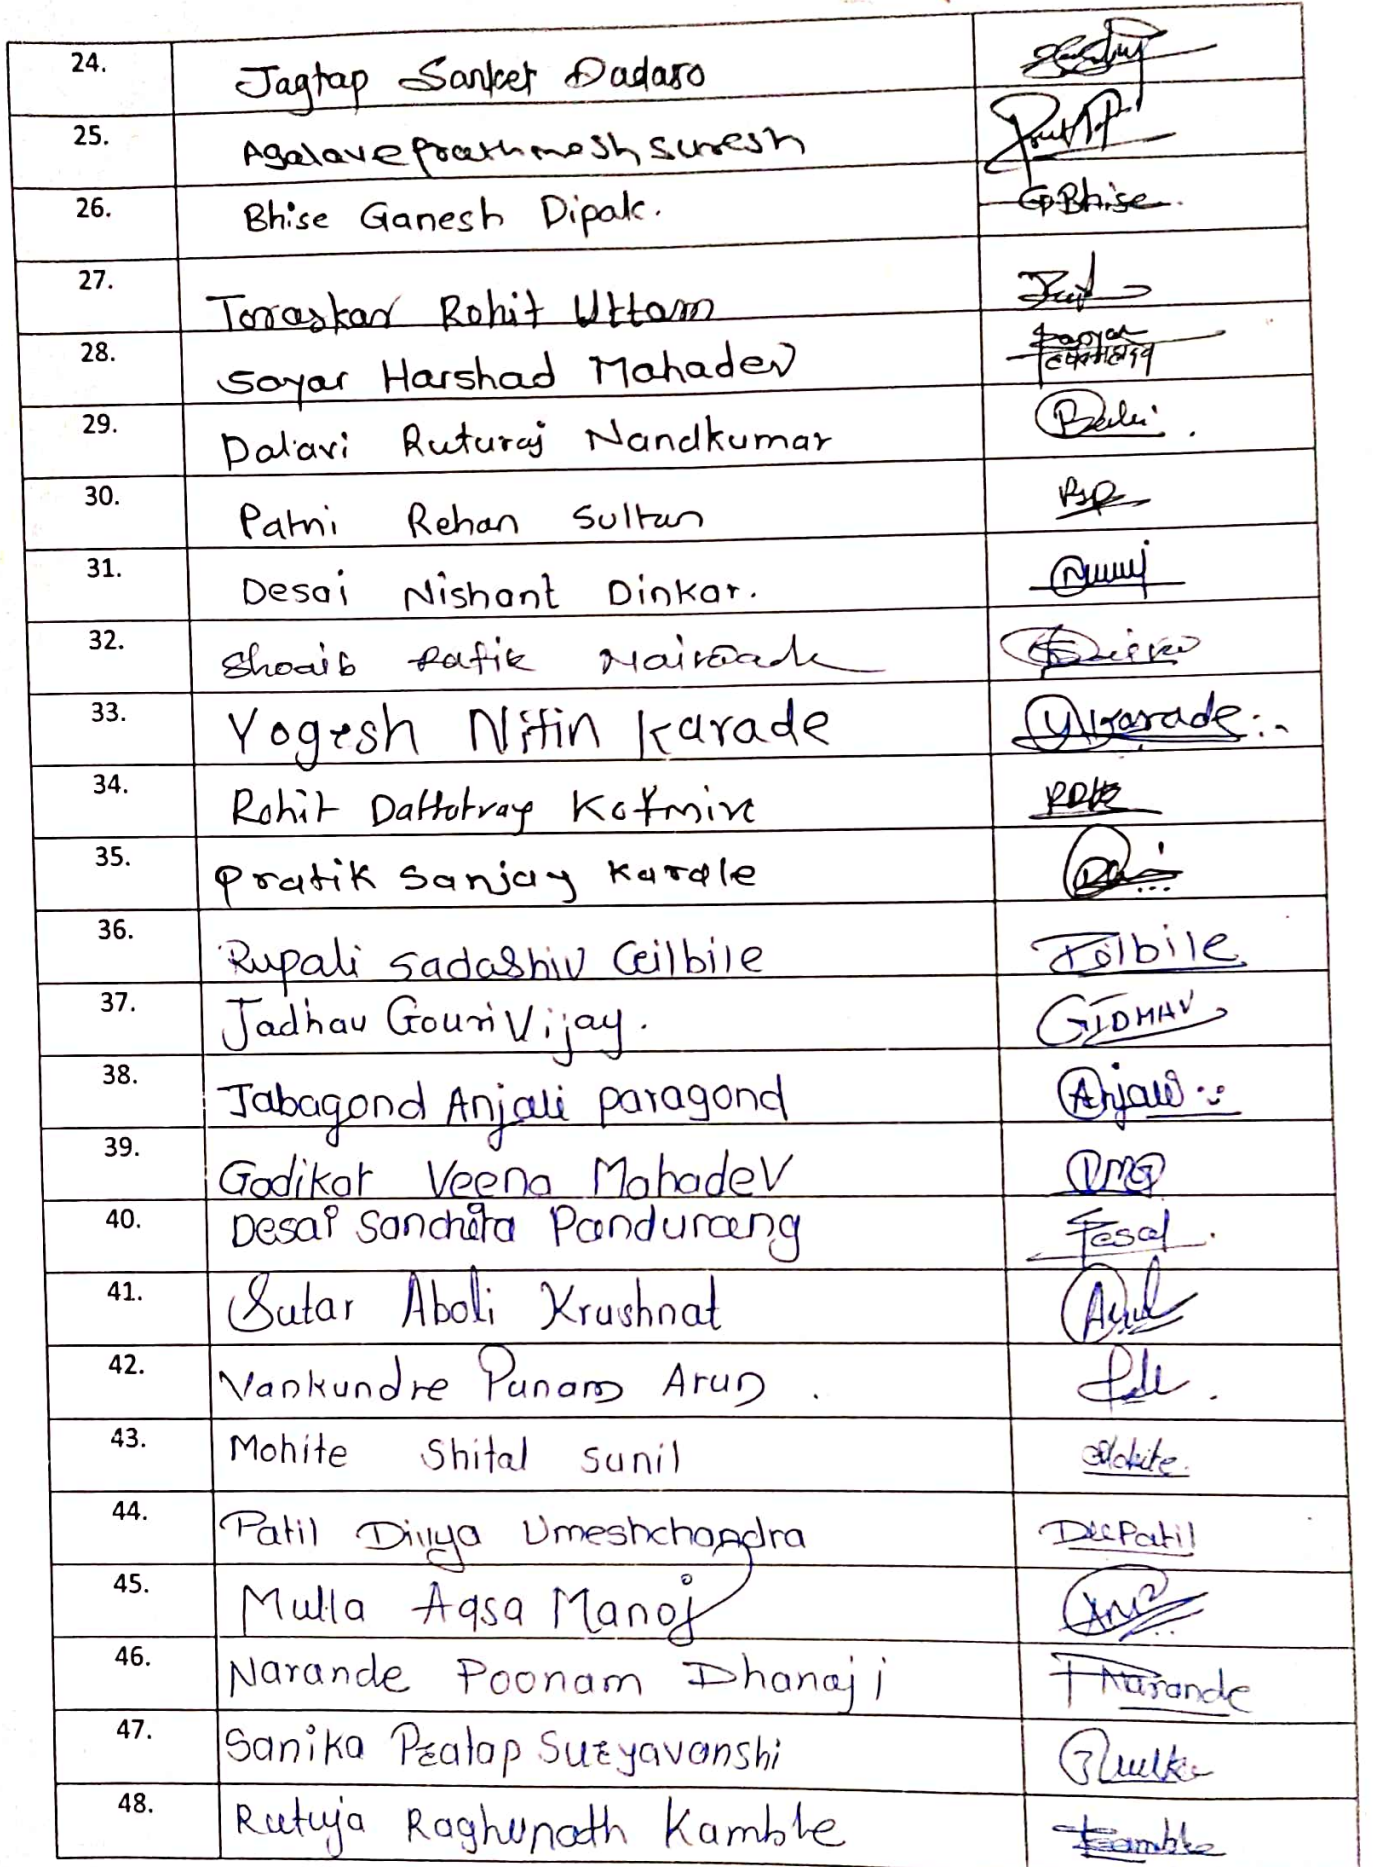 24. Jagtap Sanket Dadaso
25. Agalave prathmesh suresh
26. Bhise Ganesh Dipak. GDBhise
27. Toraskar Rohit Uttam
28. Sayar Harshad Mahadev
29. Dalavi Ruturaj Nandkumar
30. Patni Rehan Sultan
31. Desai Nishant Dinkar.
32. Shoaib Rafik
33. Yogesh Nitin Karade YNKarade
34. Rohit Dattatray Kotmire RDK
35. Pratik Sanjay Karale
36. Rupali Sadashiv
37. Jadhav Gouri Vijay.
38. Jabagond Anjali paragond Anjali
39. Godikar Veena Mahadev VMG
40. Desai Sanchita Pandurang Desai
41. Sutar Aboli Krushnat
42. Vankundre Punam Arun.
43. Mohite Shital sunil Mohite.
44. Patil Divya Umeshchandra Patil
45. Mulla Aqsa Manoj
46. Narande Poonam Dhanaji Narande
47. Sanika Pratap Suryavanshi
48. Rutuja Raghunath Kamble Kamble